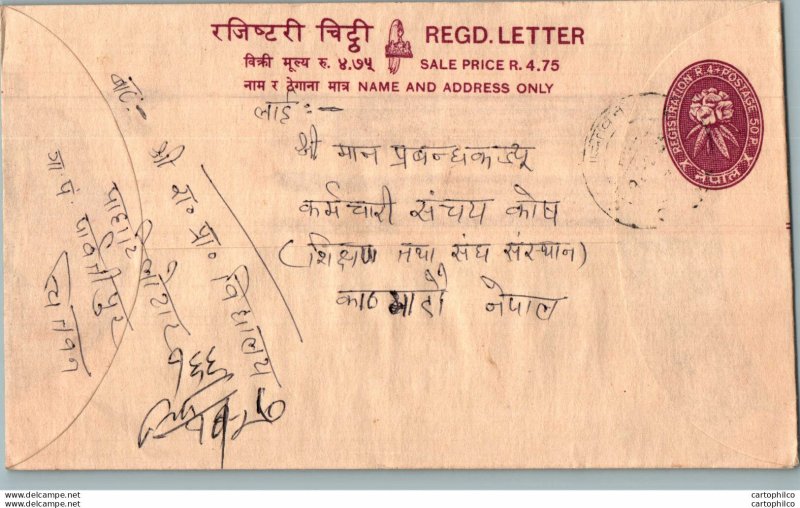 रजिष्टरी चिट्ठी REGD. LETTER
बिक्री मूल्य रु. ४.७५ SALE PRICE R. 4.75
नाम र ठेगाना मात्र NAME AND ADDRESS ONLY
REGISTRATION R.4+POSTAGE 50P.
नेपाल
लाई :-
श्री मान प्रबन्धकज्यू
कर्मचारी संचय कोष
(शिक्षण तथा संघ संस्थान)
काठमाडौं नेपाल
बाट:-
श्री रा. प्रा. विद्यालय
जा. पं. पार्वतीपुर
चितवन
www.delcampe.net
cartophilco
cartophilco
www.delcampe.net
cartophilco
cartophilco